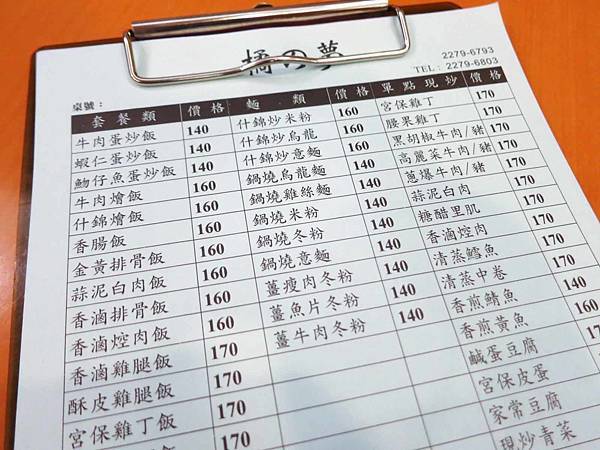 橘の夢
2279-6793
TEL: 2279-6803
桌號:
套餐類 價格 麵類 價格 單點現炒 價格
牛肉蛋炒飯 140 什錦炒米粉 160 宮保雞丁 170
蝦仁蛋炒飯 140 什錦炒烏龍 160 腰果雞丁 170
魩仔魚蛋炒飯 140 什錦炒意麵 160 黑胡椒牛肉/豬 170
牛肉燴飯 160 鍋燒烏龍麵 140 高麗菜牛肉/豬 170
什錦燴飯 160 鍋燒雞絲麵 140 蔥爆牛肉/豬 170
香腸飯 160 鍋燒米粉 140 蒜泥白肉 170
金黃排骨飯 160 鍋燒冬粉 140 糖醋里肌 170
蒜泥白肉飯 160 鍋燒意麵 140 香滷焢肉 170
香滷排骨飯 160 薑瘦肉冬粉 140 清蒸鱈魚 170
香滷焢肉飯 160 薑魚片冬粉 140 清蒸中卷 170
香滷雞腿飯 170 薑牛肉冬粉 140 香煎鯖魚 170
酥皮雞腿飯 170 香煎黃魚 170
宮保雞丁飯 170 鹹蛋豆腐
170 宮保皮蛋
家常豆腐
現炒青菜